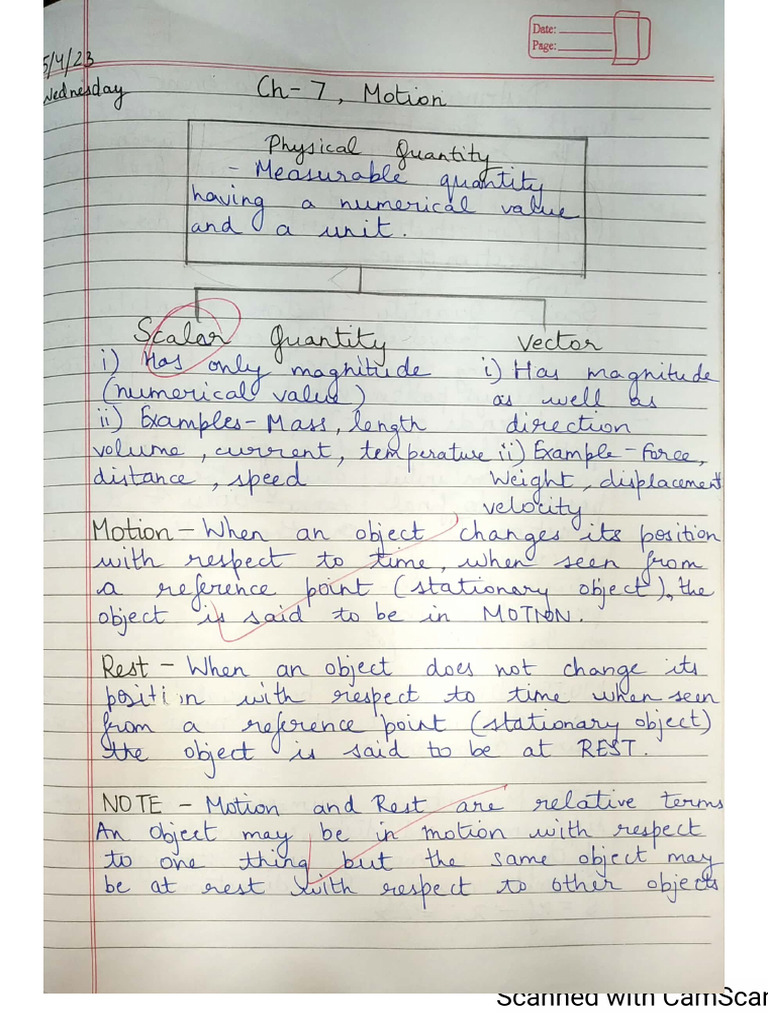 Date:
Page:
5/4/23
Wednesday
Ch-7, Motion
Physical Quantity
- Measurable quantity
having a numerical value
and a unit.
Scalar Quantity
i) Has only magnitude
(numerical value)
ii) Examples- Mass, length
volume, current, temperature
distance, speed
Vector
i) Has magnitude
as well as
direction
ii) Example - Force,
Weight, displacement
velocity
Motion - When an object changes its position
with respect to time, when seen from
a reference point (stationary object), the
object is said to be in MOTION.
Rest - When an object does not change its
position with respect to time when seen
from a reference point (stationary object)
the object is said to be at REST.
NOTE - Motion and Rest are relative terms
An object may be in motion with respect
to one thing but the same object may
be at rest with respect to other objects
Scanned with CamScan